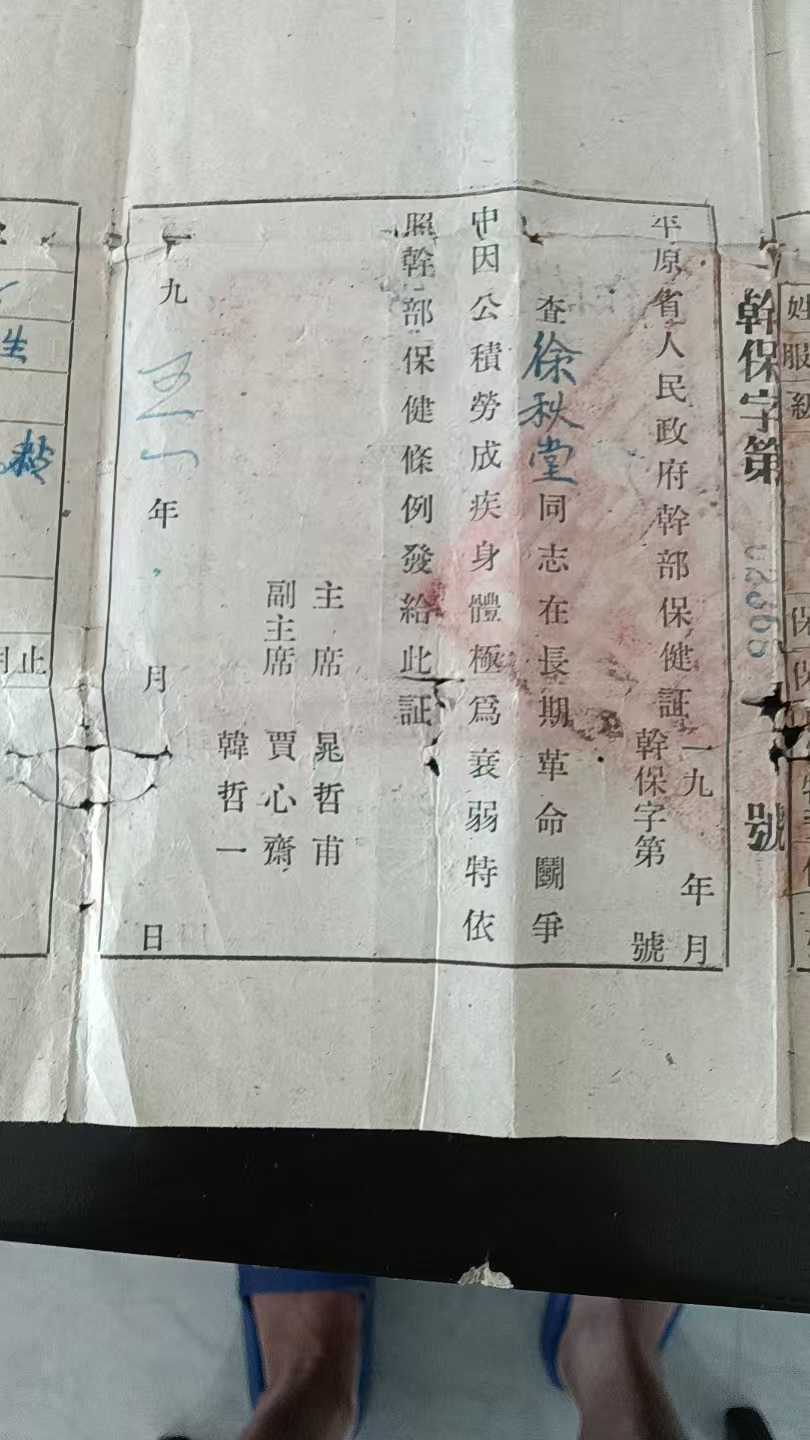 姓
服
級
保
保
幹保字第
號
平原省人民政府幹部保健証
一九 年 月
幹保字第 號
查徐秋堂同志在長期革命鬭爭
中因公積勞成疾身體極爲衰弱特依
照幹部保健條例發給此証
主席 晁哲甫
副主席 賈心齋
韓哲一
一九五一年 月 日
生
止